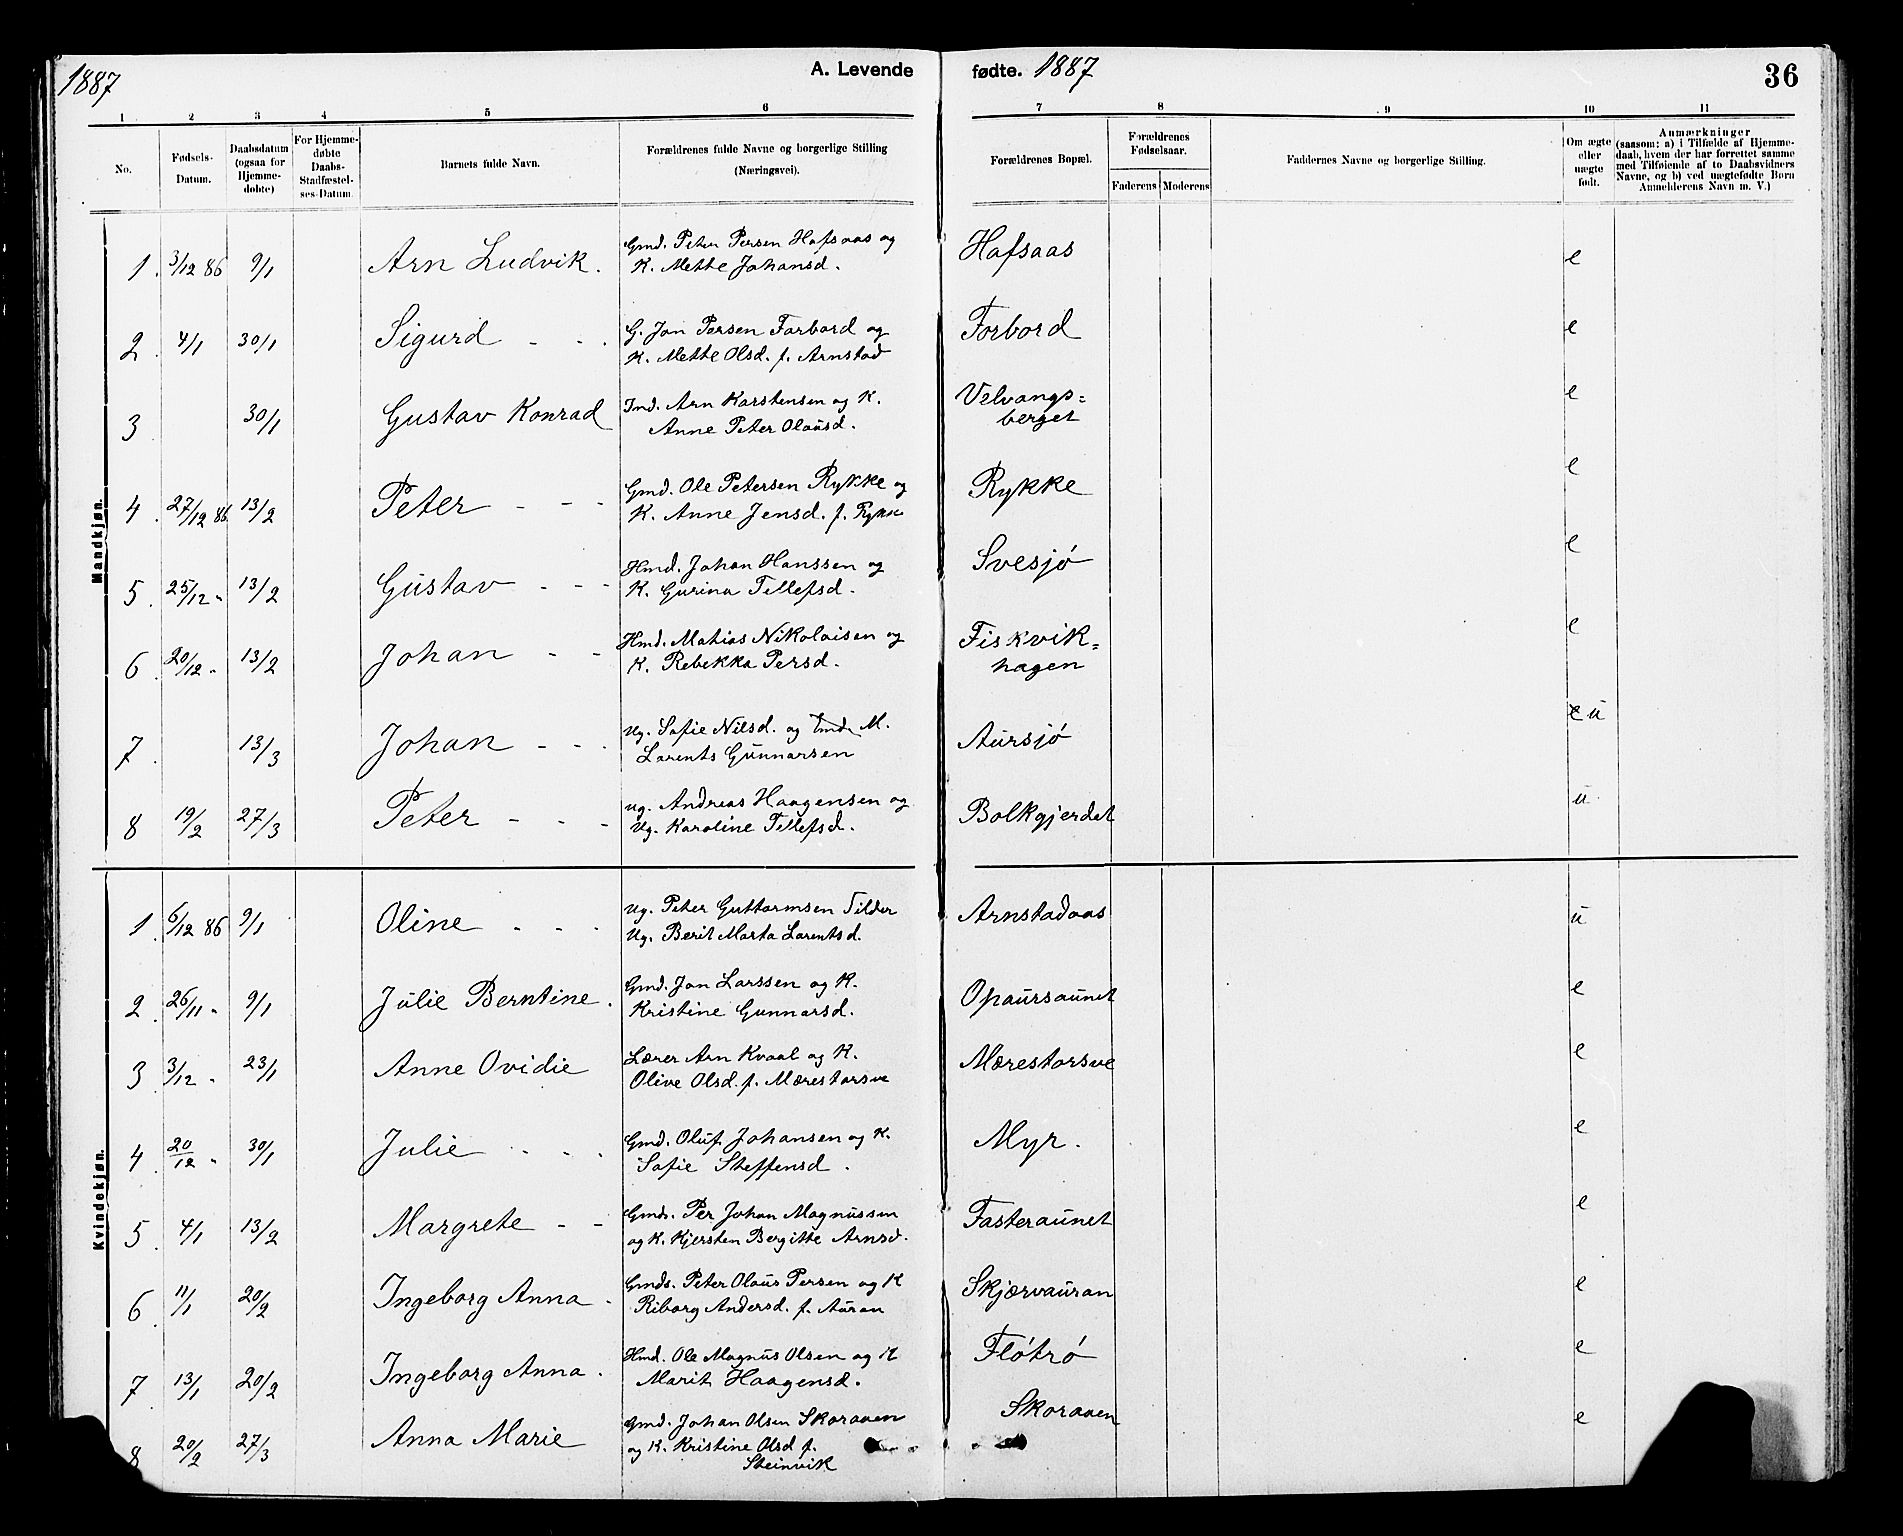 1887
A. Levende fødte. 1887
36
1 2 3 4 5 6 7 8 9 10 11
No.
Fødsels-Datum.
Daabsdatum (ogsaa for Hjemme-døbte)
For Hjemme-døbte Daabs-Stadfæstel-ses-Datum.
Barnets fulde Navn.
Forældrenes fulde Navne og borgerlige Stilling (Næringsvei).
Forældrenes Bopæl.
Forældrenes Fødselsaar.
Faderens Moderens
Faddernes Navne og borgerlige Stilling.
Om ægte eller uægte født.
Anmærkninger
(saasom: a) i Tilfælde af Hjemme-
daab, hvem der har forrettet samme
med Tilføiende af to Daabsvidners
Navne, og b) ved uægtefødte Børn
Anmelderens Navn m. V.)
Mandkjøn.
1. 3/12 86 9/1 Arn Ludvik. Gmd. Peter Persen Hafsaas og Hafsaas e
K. Mette Johansd.
2. 4/1 30/1 Sigurd - - . G. Jon Persen Forbord og Forbord e
K. Mette Olsd. f. Arnstad
3 30/1 Gustav Konrad Ind. Arn Karstensen og K. Velvangs= e
Anne Peter Olausd. berget
4. 27/12 86 13/2 Peter - - - Gmd. Ole Petersen Rykke og Rykke e
K. Anne Jensd. f. Rykke
5. 25/12 " 13/2 Gustav - - - Hmd. Johan Hanssen og Svesjó e
K. Gurina Tellefsd.
6. 20/12 " 13/2 Johan - - Hmd. Mathias Nikolaisen og Fiskvik= e
K. Rebekka Persd. hagen
7. 13/3 Johan - - . Ug. Sofie Nilsd. og M. Aursjó e u
Larents Gunnarsen
8 19/2 27/3 Peter - - - ug. Andreas Haagensen og Bolkgjerdet u.
Ug. Karoline Tellefsd.
Kvindekjøn.
1. 6/12 86 9/1 Oline . . . ug. Peter Guttormsen Tilder Arnstadaas u
Ug. Berit Marta Larentsd.
2. 26/11 " 9/1 Julie Berntine. Gmd. Jon Larssen og K. Opaursaunet e
Kristine Gunnarsd.
3. 3/12 " 23/1 Anne Ovidie Lærer Arn Kvaal og K. Mærestorsve e
Olive Olsd. f. Mærestorsve
4. 20/12 " 30/1 Julie . . . Gmd. Oluf Johansen og K. Myr. e
Sofie Steffensd.
5. 4/1 13/2 Margrete - - Gmds. Per Johan Magnussen Fasteraunet e
og K. Kjersten Bergitte Arnsd.
6. 11/1 20/2 Ingeborg Anna . Gmds. Peter Olaus Persen og K Skjærvauran e
Riborg Andersd. f. Auran
7. 13/1 20/2 Ingeborg Anna . Hmd. Ole Magnus Olsen og K Flótró e
Marit Haagensd.
8 20/2 27/3 Anna Marie Gmd. Johan Olsen Skoraven Skoraven e
og K. Kristine Olsd f.
Steinvik